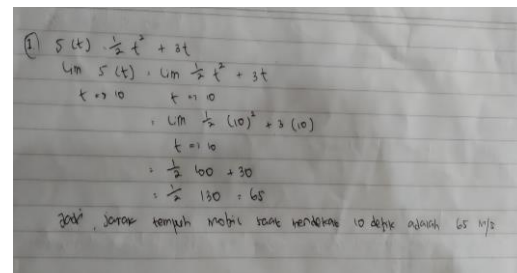 ① S(t) = ½ t² + 3t
lim S(t) = lim ½ t² + 3t
t => 10 t => 10
= lim ½ (10)² + 3 (10)
t => 10
= ½ 100 + 30
= ½ 130 = 65
Jadi, jarak tempuh mobil saat mendekati 10 detik adalah 65 m/s